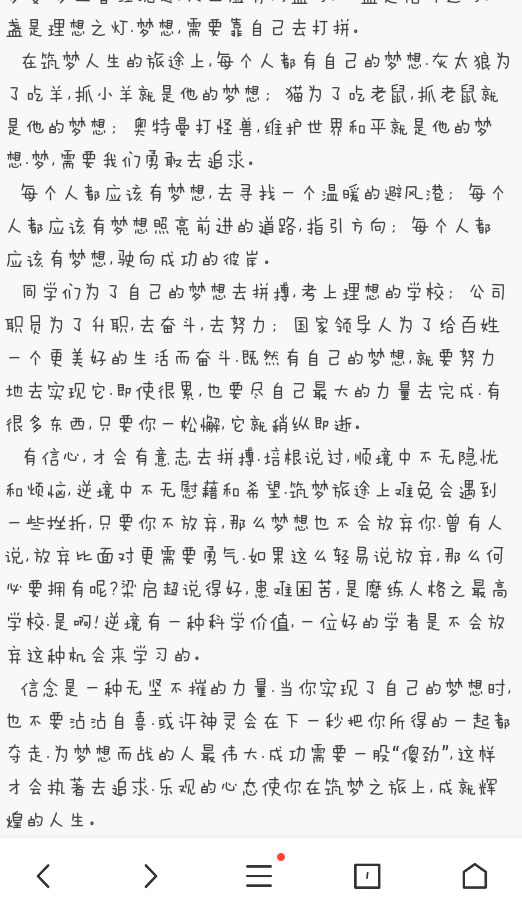 盏是理想之灯.梦想,需要靠自己去打拼。
在筑梦人生的旅途上,每个人都有自己的梦想.灰太狼为
了吃羊,抓小羊就是他的梦想；猫为了吃老鼠,抓老鼠就
是他的梦想；奥特曼打怪兽,维护世界和平就是他的梦
想.梦,需要我们勇敢去追求。
每个人都应该有梦想,去寻找一个温暖的避风港；每个
人都应该有梦想照亮前进的道路,指引方向；每个人都
应该有梦想,驶向成功的彼岸。
同学们为了自己的梦想去拼搏,考上理想的学校；公司
职员为了升职,去奋斗,去努力；国家领导人为了给百姓
一个更美好的生活而奋斗.既然有自己的梦想,就要努力
地去实现它.即使很累,也要尽自己最大的力量去完成.有
很多东西,只要你一松懈,它就稍纵即逝。
有信心,才会有意志去拼搏.培根说过,顺境中不无隐忧
和烦恼,逆境中不无慰藉和希望.筑梦旅途上难免会遇到
一些挫折,只要你不放弃,那么梦想也不会放弃你.曾有人
说,放弃比面对更需要勇气.如果这么轻易说放弃,那么何
必要拥有呢?梁启超说得好,患难困苦,是磨练人格之最高
学校.是啊!逆境有一种科学价值,一位好的学者是不会放
弃这种机会来学习的。
信念是一种无坚不摧的力量.当你实现了自己的梦想时,
也不要沾沾自喜.或许神灵会在下一秒把你所得的一起都
夺走.为梦想而战的人最伟大.成功需要一股“傻劲”,这样
才会执著去追求.乐观的心态使你在筑梦之旅上,成就辉
煌的人生。